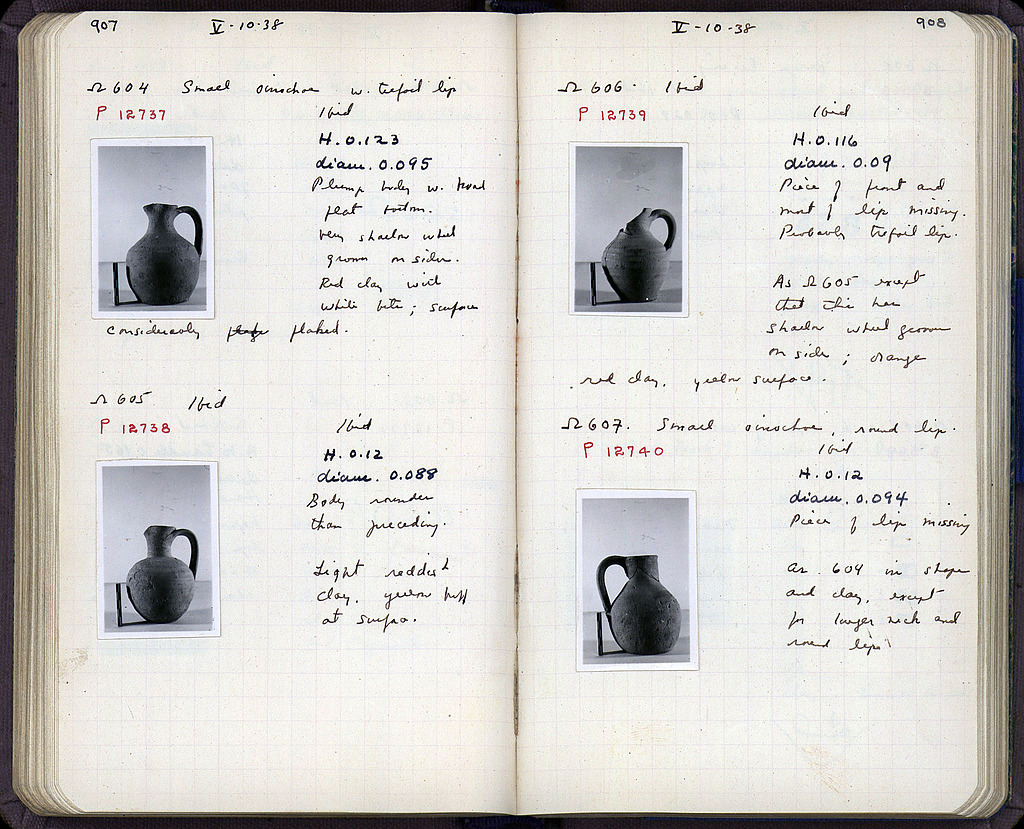 907
V-10-38
Ω 604 Small oinochoe w. trefoil lip
P 12737
Ibid
H. 0.123
diam. 0.095
Plump body w. broad
flat bottom.
Very shallow wheel
grooves on sides.
Red clay with
white bits; surface
considerably flaked.
Ω 605 Ibid
P 12738
Ibid
H. 0.12
diam. 0.088
Body rounder
than preceding.
Light reddish
clay, yellow buff
at surface.
908
V-10-38
Ω 606. Ibid
P 12739
Ibid
H. 0.116
diam. 0.09
Piece of front and
most of lip missing.
Probably trefoil lip.
As Ω 605 except
that this has
shallow wheel grooves
on side; orange
red clay, yellow surface.
Ω 607. Small oinochoe, round lip.
P 12740
Ibid
H. 0.12
diam. 0.094
Piece of lip missing
As 604 in shape
and clay, except
for longer neck and
round lip